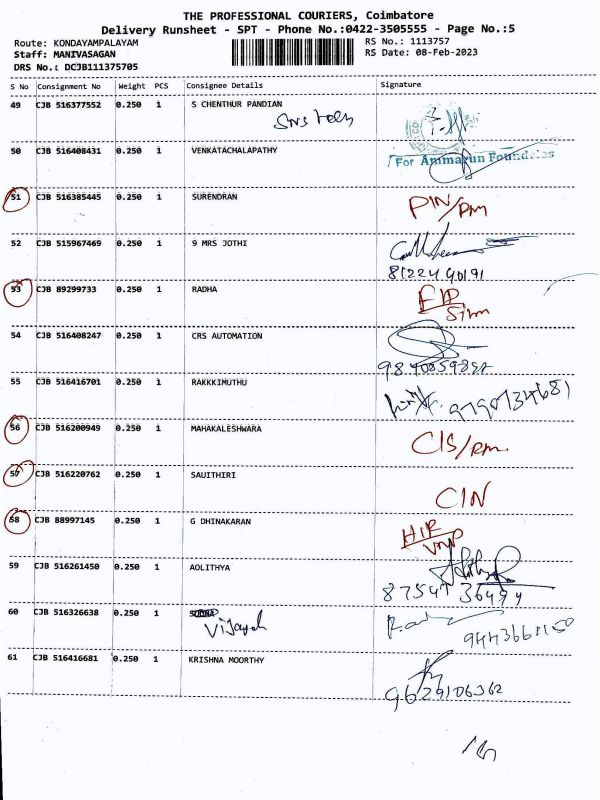 THE PROFESSIONAL COURIERS, Coimbatore
Delivery Runsheet - SPT - Phone No.:0422-3505555 - Page No.:5
Route: KONDAYAMPALAYAM RS No.: 1113757
Staff: MANIVASAGAN RS Date: 08-Feb-2023
DRS No.: DCJB111375705
S No Consignment No Weight PCS Consignee Details Signature
49 CJB 516377552 0.250 1 S CHENTHUR PANDIAN
50 CJB 516408431 0.250 1 VENKATACHALAPATHY
For Ammarun Foundries
51 CJB 516385445 0.250 1 SURENDRAN PIN/PM
52 CJB 515967469 0.250 1 9 MRS JOTHI
81224 90191
53 CJB 89299733 0.250 1 RADHA
54 CJB 516408247 0.250 1 CRS AUTOMATION
55 CJB 516416701 0.250 1 RAKKKIMUTHU 9790734681
56 CJB 516200949 0.250 1 MAHAKALESHWARA CIS/PM
57 CJB 516220762 0.250 1 SAUITHIRI CIN
58 CJB 88997145 0.250 1 G DHINAKARAN
59 CJB 516261450 0.250 1 AOLITHYA
60 CJB 516326638 0.250 1
Vijayah
61 CJB 516416681 0.250 1 KRISHNA MOORTHY
9629106362